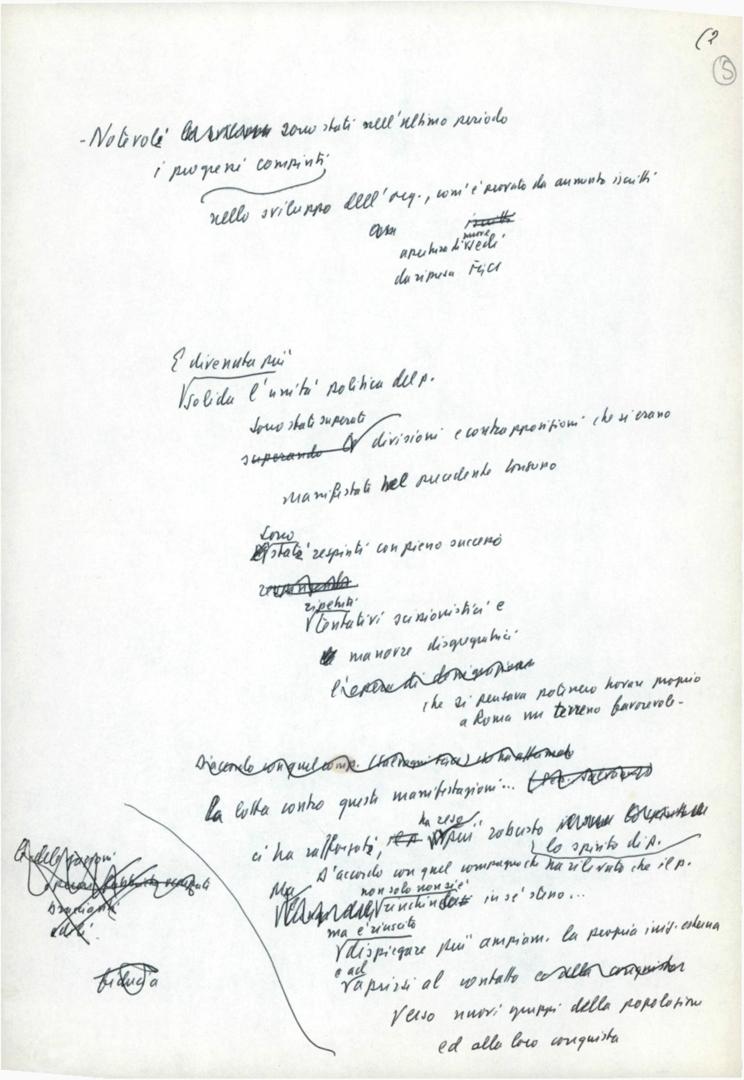 (2
5
- Notevoli sono stati nell'ultimo periodo
i progressi compiuti
nello sviluppo dell'org., com'è provato da aumento iscritti
apertura di nuove sedi
da ripresa FGCI
È divenuta più
solida l'unità politica del p.
Sono stati superati
superando divisioni e contrapposizioni che si erano
manifestati nel precedente Congresso
Sono
stati respinti con pieno successo
ripetuti
tentativi scissionistici e
manovre disgregatrici
l'opera di
che si pensava potessero trovare proprio
a Roma un terreno favorevole -
D'accordo con quel comp.
La lotta contro queste manifestazioni...
ha reso
ci ha rafforzati, più robusto
lo spirito di p.
D'accordo con quel compagno che ha rilevato che il p.
Ma non solo non si è
rinchiuso in sé stesso...
ma è riuscito
dispiegare più ampiam. la propria iniz. esterna
e ad
aprirsi al contatto
verso nuovi gruppi della popolazione
ed alla loro conquista
fiducia